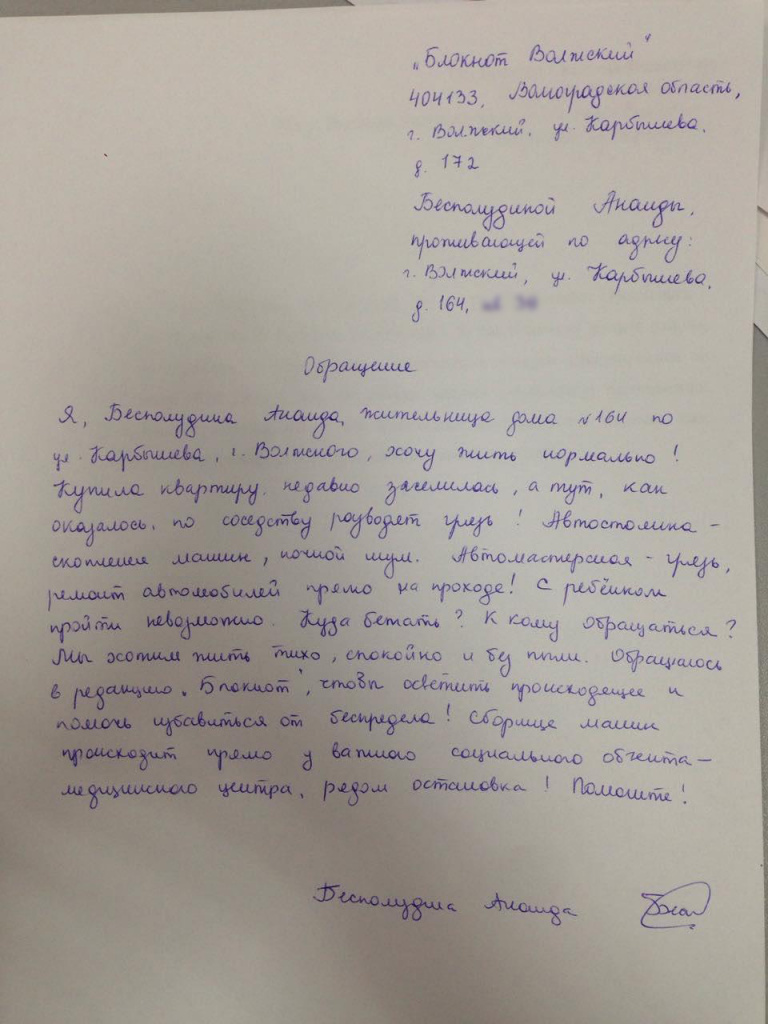 „Блокнот Волжский"
404133, Волгоградская область,
г. Волжский, ул. Карбышева,
д. 172
Бесполудиной Анаиды,
проживающей по адресу:
г. Волжский, ул. Карбышева,
д. 164,
Обращение
Я, Бесполудина Анаида, жительница дома №164 по
ул. Карбышева, г. Волжского, хочу жить нормально!
Купила квартиру, недавно заселилась, а тут, как
оказалось, по соседству разводят грязь! Автостоянка -
скопления машин, ночной шум. Автомастерская - грязь,
ремонт автомобилей прямо на проходе! С ребёнком
пройти невозможно. Куда бежать? К кому обращаться?
Мы хотим жить тихо, спокойно и без пыли. Обращаюсь
в редакцию „Блокнот", чтобы осветить происходящее и
помочь избавиться от беспредела! Сборище машин
происходит прямо у важного социального объекта -
медицинского центра, рядом остановка! Помогите!
Бесполудина Анаида